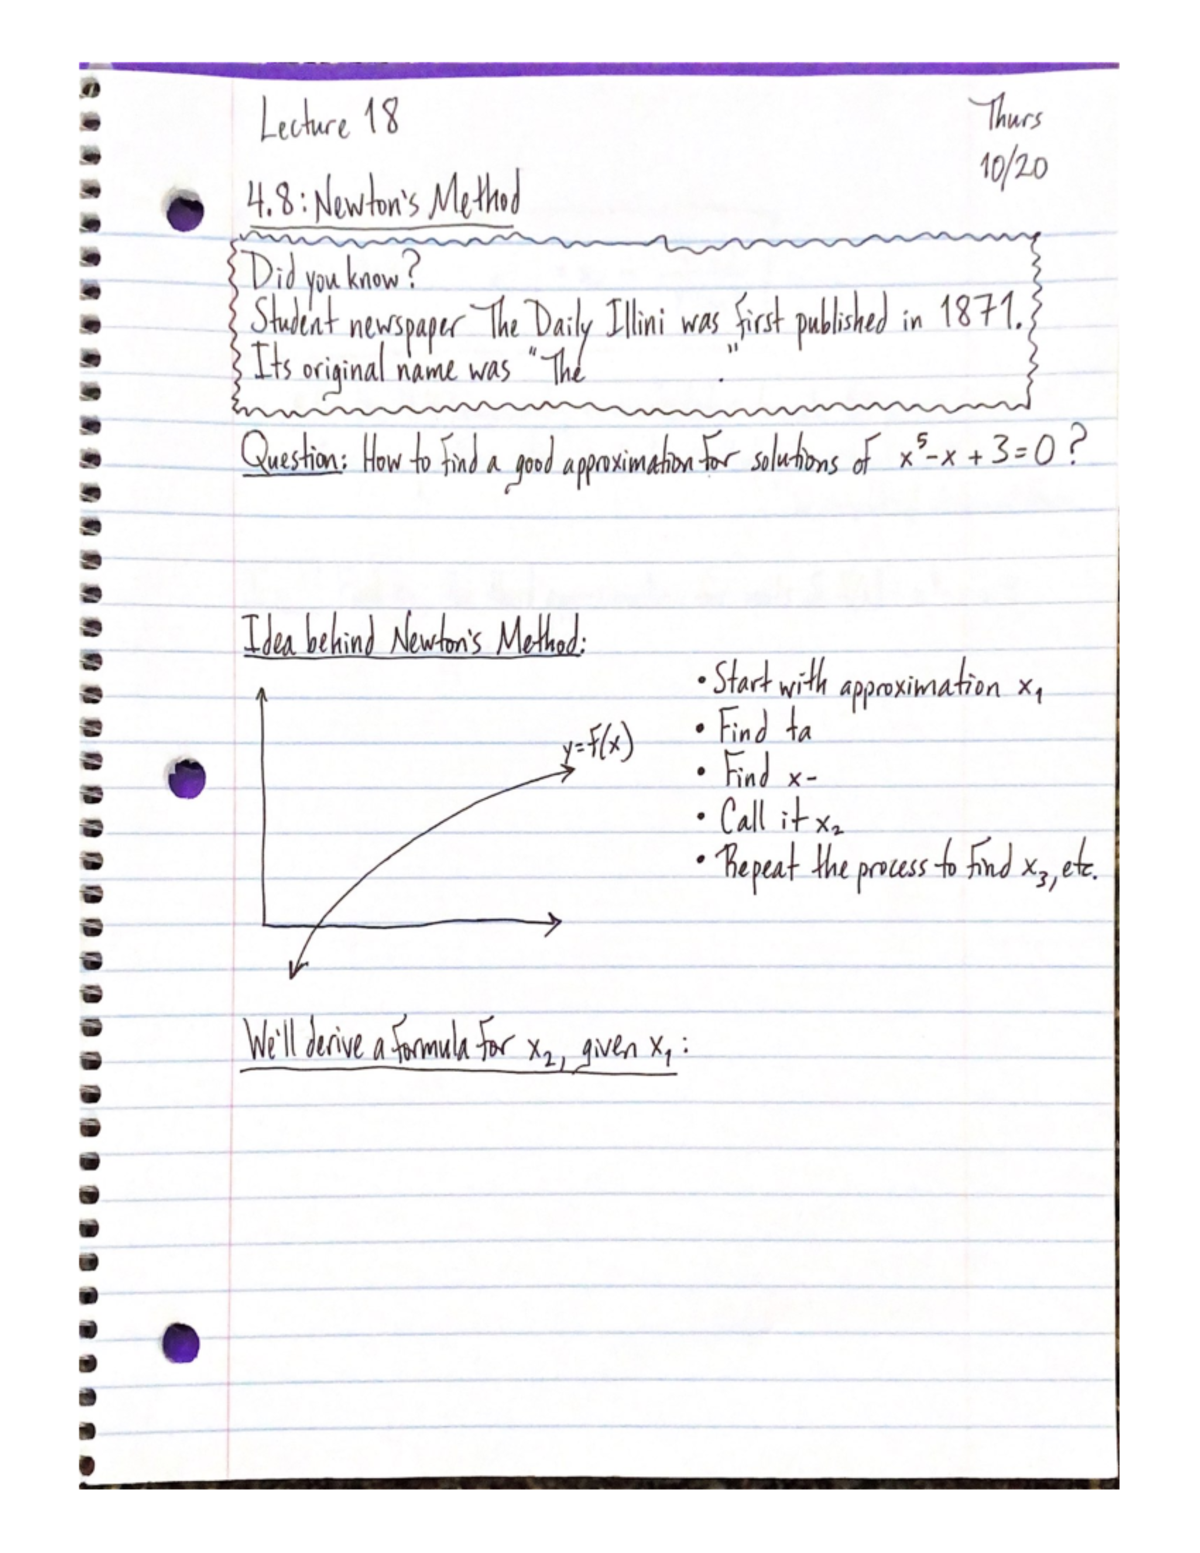 Lecture 18
Thurs
10/20
4.8: Newton's Method
Did you know?
Student newspaper The Daily Illini was first published in 1871.
Its original name was "The ".
Question: How to find a good approximation for solutions of x⁵-x+3=0?
Idea behind Newton's Method:
y=f(x)
• Start with approximation x₁
• Find ta
• Find x-
• Call it x₂
• Repeat the process to find x₃, etc.
We'll derive a formula for x₂, given x₁: